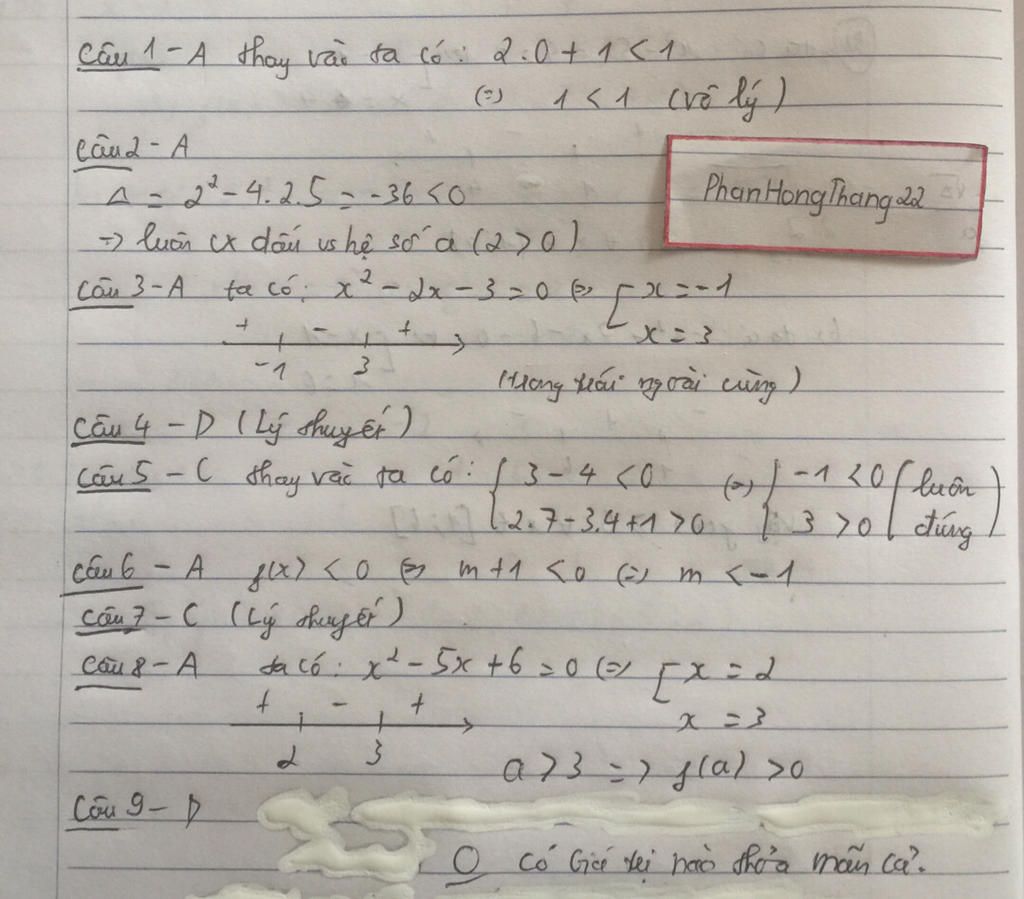 Câu 1 - A thay vào ta có: 2.0 + 1 < 1
(=) 1 < 1 (vô lý)
Câu 2 - A
PhanHongThang22
Δ = 2² - 4.2.5 = -36 < 0
=> luôn cx dấu vs hệ số a (2 > 0)
Câu 3 - A ta có: x² - 2x - 3 = 0 (=) [ x = -1
x = 3
+ - +
-1 3
(trong trái ngoài cùng)
Câu 4 - D (Lý thuyết)
Câu 5 - C thay vào ta có: { 3 - 4 < 0 (=) { -1 < 0 ( luôn
2.7 - 3.4 + 1 > 0 3 > 0 đúng )
Câu 6 - A f(x) < 0 (=) m + 1 < 0 (=) m < -1
Câu 7 - C (Lý thuyết)
Câu 8 - A ta có: x² - 5x + 6 = 0 (=) [ x = 2
+ - + x = 3
2 3
a > 3 => f(a) > 0
Câu 9 - D
O có Giá trị nào thỏa mãn cả.